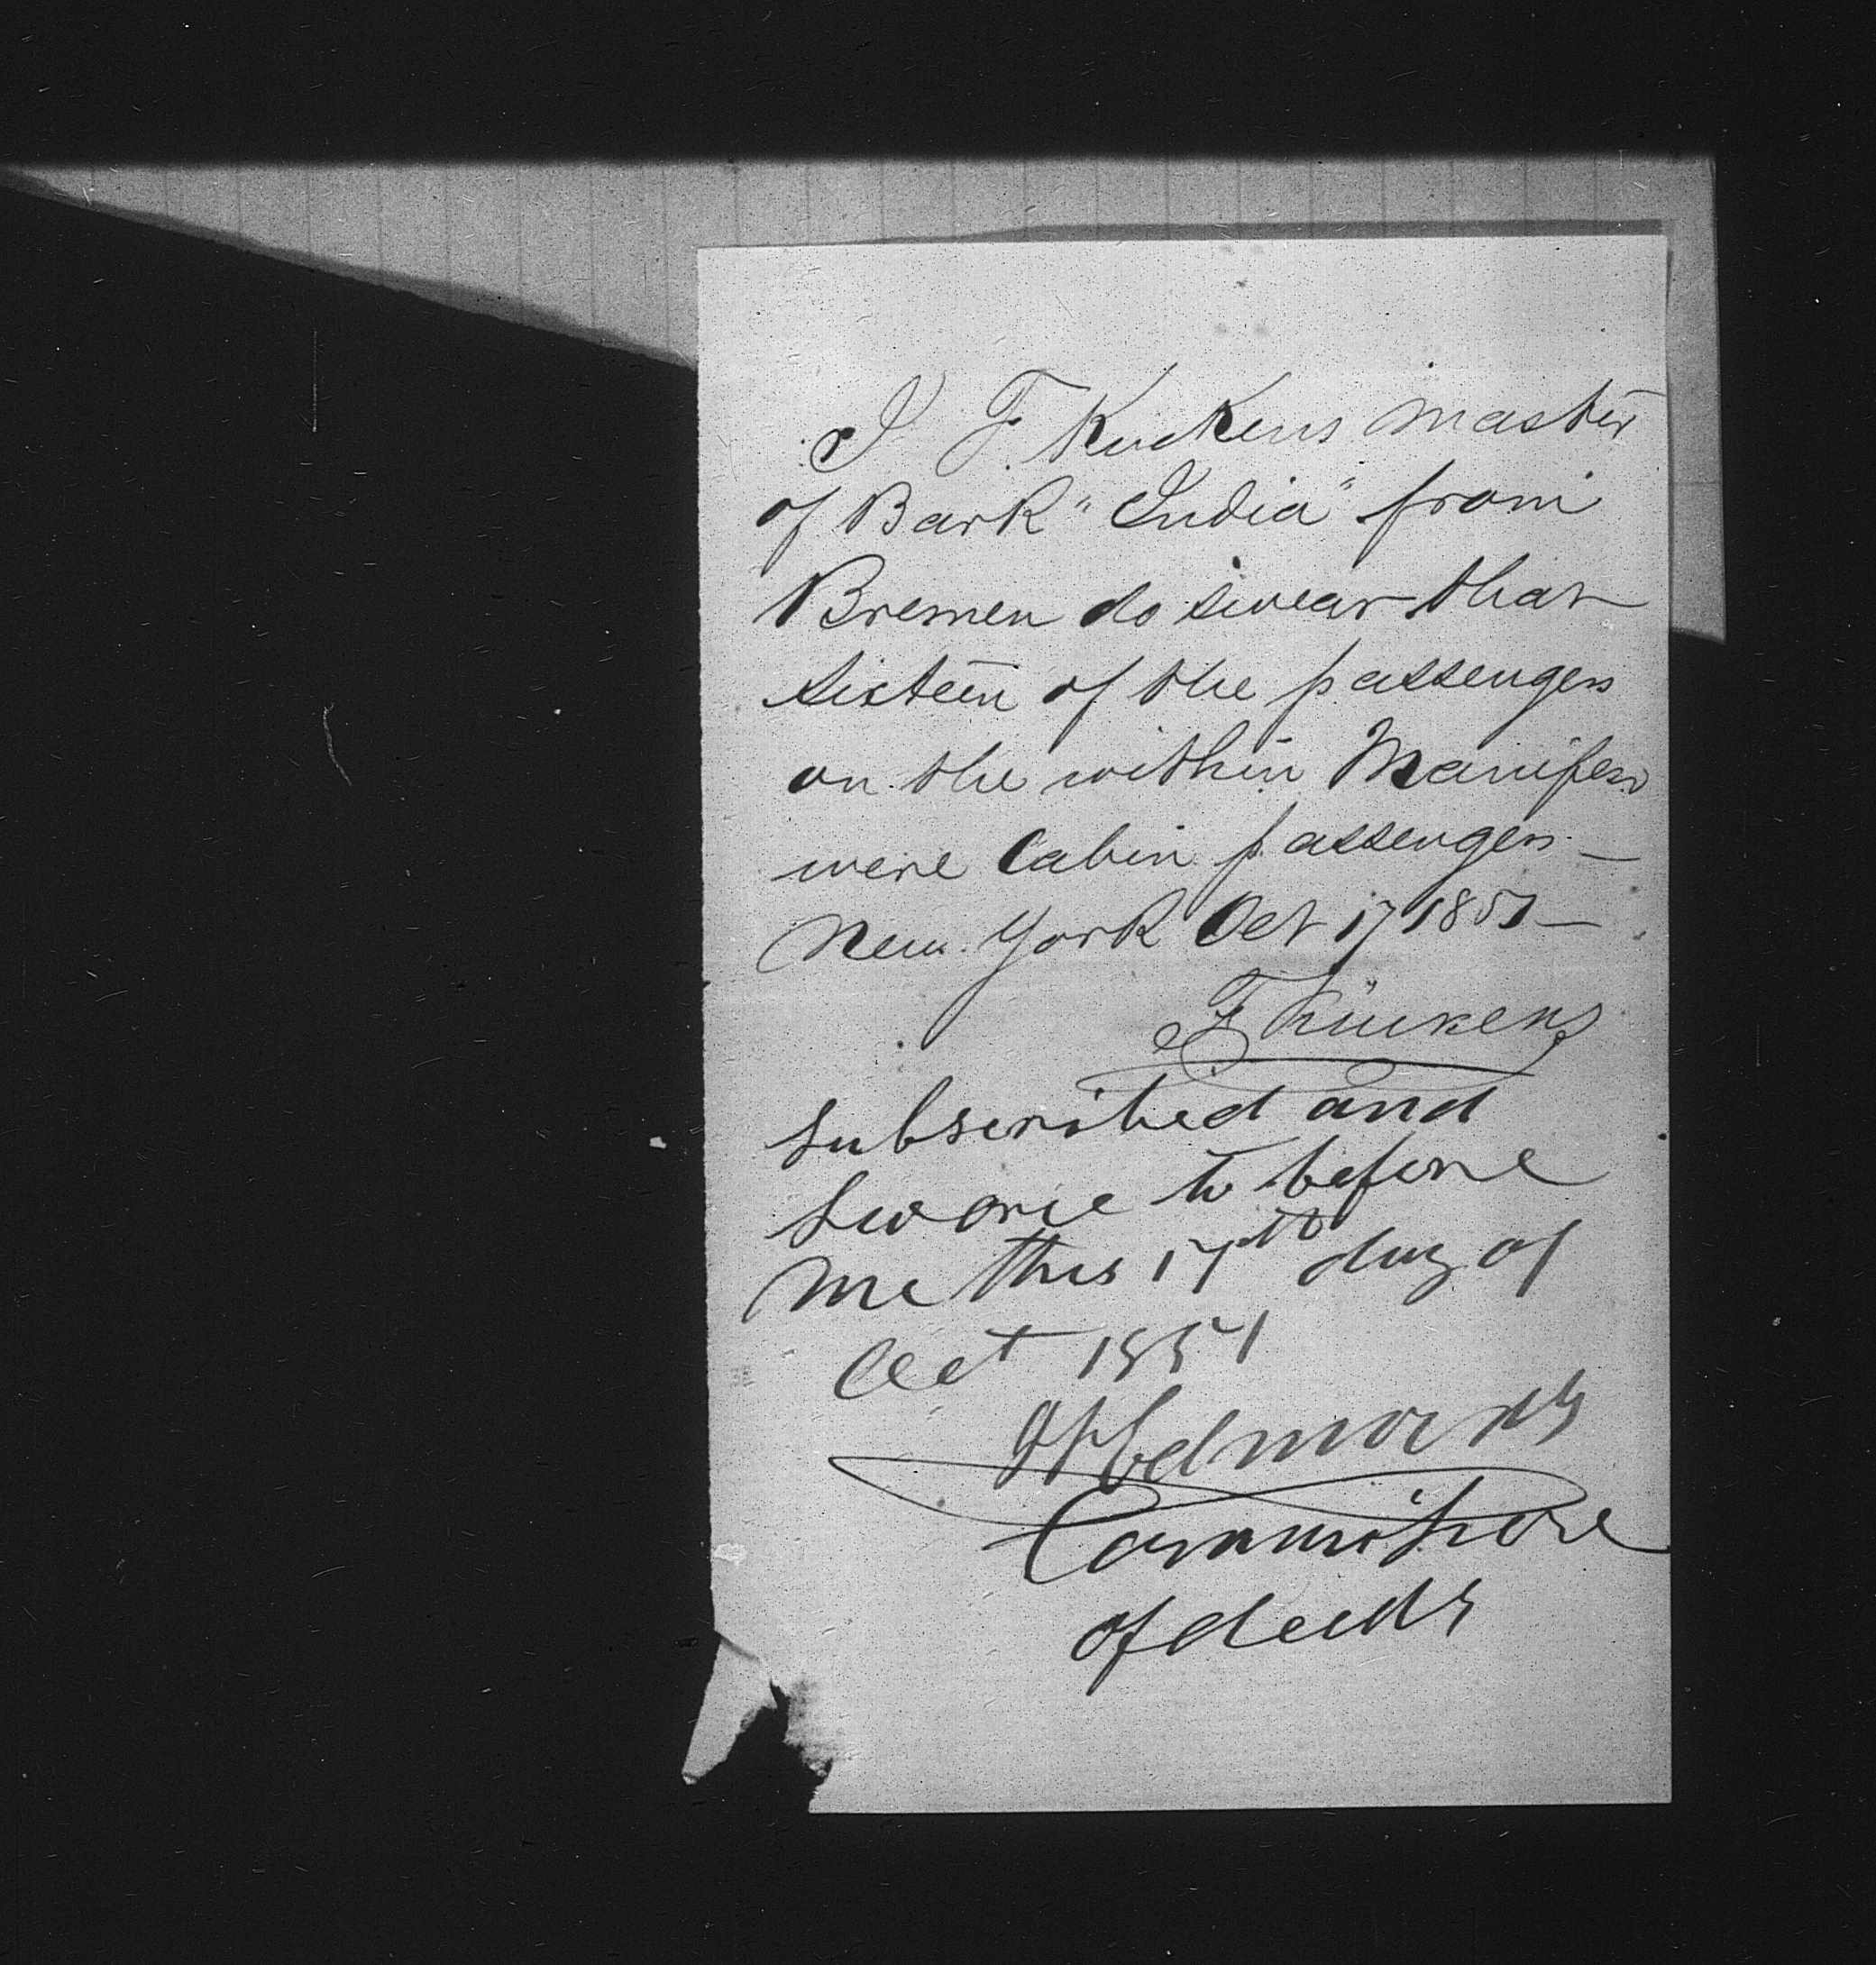 I F. Kuckens master
of Bark "India" from
Bremen do swear that
sixteen of the passengers
on the within Manifest
were Cabin passengers —
New York Oct 17 1851 —
F Kückens
subscribed and
sworne to before
me this 17th day of
Oct 1851
Edmonds
of deeds